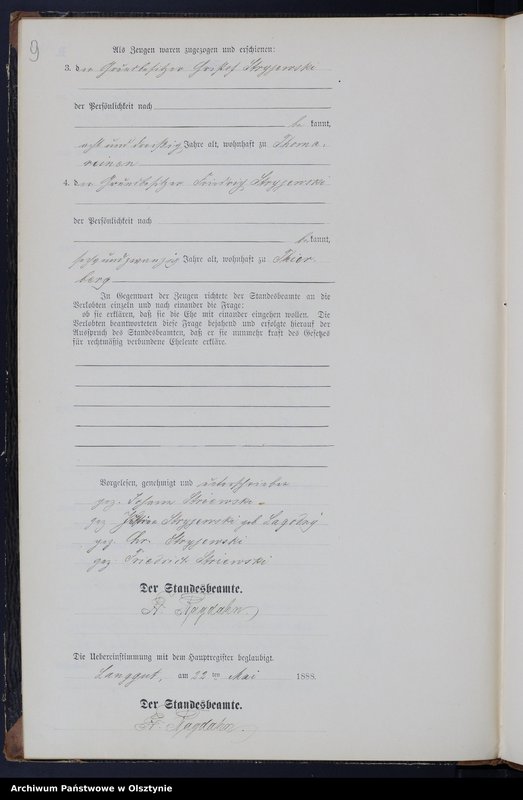 9
Als Zeugen waren zugezogen und erschienen:
3. der Grundbesitzer Gristof Stryjewski
der Persönlichkeit nach
be kannt,
acht und dreißig Jahre alt, wohnhaft zu Thoma-
reinen
4. der Grundbesitzer Friedrich Stryjewski
der Persönlichkeit nach
be kannt,
sechsundzwanzig Jahre alt, wohnhaft zu Thier-
berg
In Gegenwart der Zeugen richtete der Standesbeamte an die
Verlobten einzeln und nach einander die Frage:
ob sie erklären, daß sie die Ehe mit einander eingehen wollen. Die
Verlobten beantworteten diese Frage bejahend und erfolgte hierauf der
Ausspruch des Standesbeamten, daß er sie nunmehr kraft des Gesetzes
für rechtmäßig verbundene Eheleute erkläre.
Vorgelesen, genehmigt und unterschrieben
gez. Johann Striewski
gez. Stryjewski geb. Lagoday
gez. Chr. Stryjewski
gez. Friedrich Striewski
Der Standesbeamte.
Ragdahn
Die Uebereinstimmung mit dem Hauptregister beglaubigt.
Langgut, am 22 ten Mai 1888.
Der Standesbeamte.
Ragdahn.
Archiwum Państwowe w Olsztynie